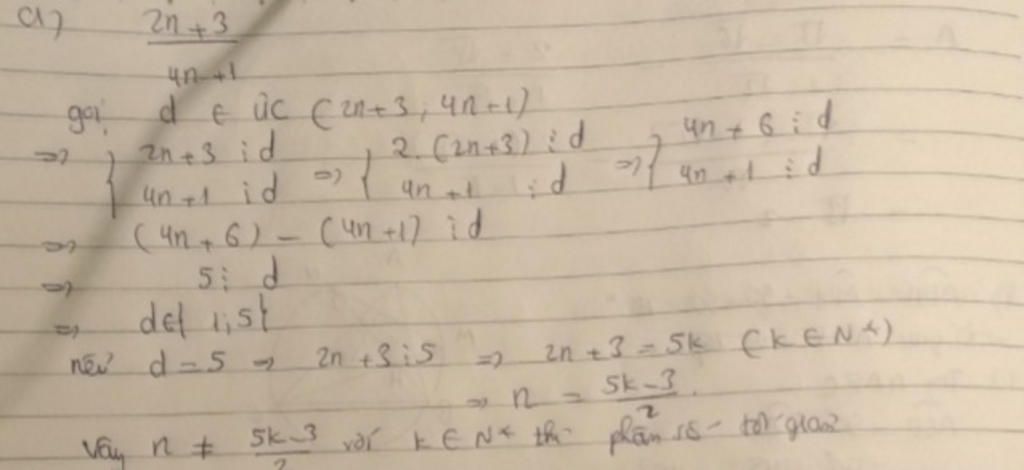 a) \frac{2n+3}{4n+1}
gọi d ∈ ƯC (2n+3, 4n+1)
=> { 2n+3 ⋮ d 4n+1 ⋮ d => { 2.(2n+3) ⋮ d 4n+1 ⋮ d => { 4n+6 ⋮ d 4n+1 ⋮ d
=> (4n+6) - (4n+1) ⋮ d
=> 5 ⋮ d
=> d∈{1,5}
nếu d=5 => 2n+3⋮5 => 2n+3=5k (k∈N*)
=> n = \frac{5k-3}{2}.
Vậy n ≠ \frac{5k-3}{2} với k∈N* thì phân số tối giản